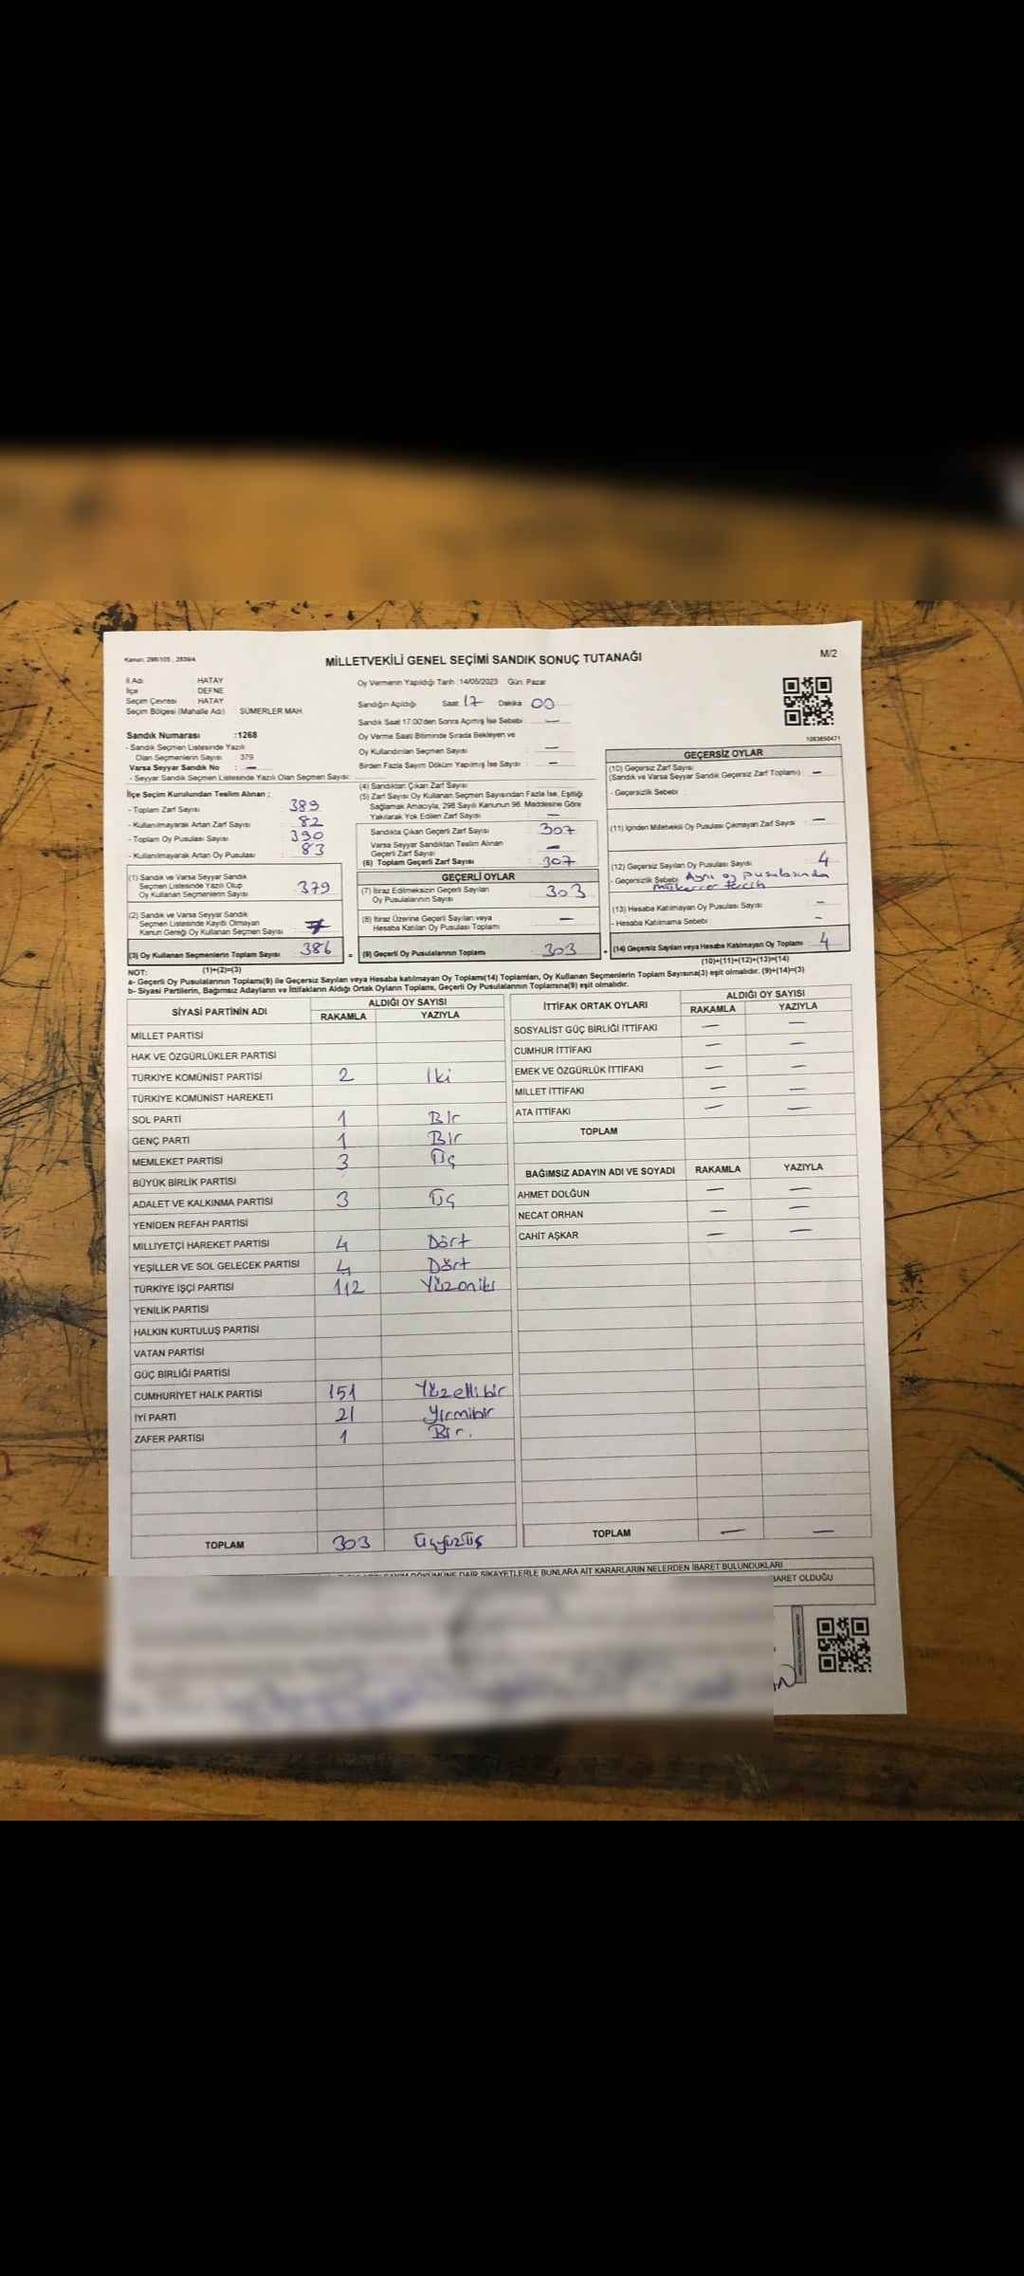 Kanun: 298/105 , 2839/4
MİLLETVEKİLİ GENEL SEÇİMİ SANDIK SONUÇ TUTANAĞI
M/2
İl Adı HATAY
İlçe DEFNE
Seçim Çevresi HATAY
Seçim Bölgesi (Mahalle Adı) SÜMERLER MAH.
Oy Vermenin Yapıldığı Tarih :14/05/2023 Gün: Pazar
Sandığın Açıldığı Saat 17 Dakika 00
Sandık Saat 17.00'den Sonra Açılmış İse Sebebi : —
Oy Verme Saati Bitiminde Sırada Bekleyen ve
Oy Kullandırılan Seçmen Sayısı —
Birden Fazla Sayım Döküm Yapılmış İse Sayısı : —
1083650471
Sandık Numarası :1268
- Sandık Seçmen Listesinde Yazılı
Olan Seçmenlerin Sayısı 379
Varsa Seyyar Sandık No : —
- Seyyar Sandık Seçmen Listesinde Yazılı Olan Seçmen Sayısı:
İlçe Seçim Kurulundan Teslim Alınan ;
- Toplam Zarf Sayısı 389
- Kullanılmayarak Artan Zarf Sayısı 82
- Toplam Oy Pusulası Sayısı 390
- Kullanılmayarak Artan Oy Pusulası 83
(1) Sandık ve Varsa Seyyar Sandık
Seçmen Listesinde Yazılı Olup
Oy Kullanan Seçmenlerin Sayısı 379
(2) Sandık ve Varsa Seyyar Sandık
Seçmen Listesinde Kayıtlı Olmayan
Kanun Gereği Oy Kullanan Seçmen Sayısı 7
(3) Oy Kullanan Seçmenlerin Toplam Sayısı 386
(1)+(2)=(3)
(4) Sandıktan Çıkan Zarf Sayısı
(5) Zarf Sayısı Oy Kullanan Seçmen Sayısından Fazla İse, Eşitliği
Sağlamak Amacıyla, 298 Sayılı Kanunun 98. Maddesine Göre
Yakılarak Yok Edilen Zarf Sayısı —
Sandıkta Çıkan Geçerli Zarf Sayısı 307
Varsa Seyyar Sandıktan Teslim Alınan
Geçerli Zarf Sayısı —
(6) Toplam Geçerli Zarf Sayısı 307
GEÇERLİ OYLAR
(7) İtiraz Edilmeksizin Geçerli Sayılan
Oy Pusulalarının Sayısı 303
(8) İtiraz Üzerine Geçerli Sayılan veya
Hesaba Katılan Oy Pusulası Toplamı —
= (9) Geçerli Oy Pusulalarının Toplamı 303
GEÇERSİZ OYLAR
(10) Geçersiz Zarf Sayısı
(Sandık ve Varsa Seyyar Sandık Geçersiz Zarf Toplamı) —
- Geçersizlik Sebebi
(11) İçinden Milletvekili Oy Pusulası Çıkmayan Zarf Sayısı —
(12) Geçersiz Sayılan Oy Pusulası Sayısı 4
- Geçersizlik Sebebi Aynı oy pusulasında
mükerrer tercih
(13) Hesaba Katılmayan Oy Pusulası Sayısı –
- Hesaba Katılmama Sebebi –
+ (14) Geçersiz Sayılan veya Hesaba Katılmayan Oy Toplamı 4
(10)+(11)+(12)+(13)=(14)
NOT:
a- Geçerli Oy Pusulalarının Toplamı(9) ile Geçersiz Sayılan veya Hesaba katılmayan Oy Toplamı(14) Toplamları, Oy Kullanan Seçmenlerin Toplam Sayısına(3) eşit olmalıdır. (9)+(14)=(3)
b- Siyasi Partilerin, Bağımsız Adayların ve İttifakların Aldığı Ortak Oyların Toplamı, Geçerli Oy Pusulalarının Toplamına(9) eşit olmalıdır.
SİYASİ PARTİNİN ADI ALDIĞI OY SAYISI
RAKAMLA YAZIYLA
MİLLET PARTİSİ
HAK VE ÖZGÜRLÜKLER PARTİSİ
TÜRKİYE KOMÜNİST PARTİSİ 2 İki
TÜRKİYE KOMÜNİST HAREKETİ
SOL PARTİ 1 Bir
GENÇ PARTİ 1 Bir
MEMLEKET PARTİSİ 3 Üç
BÜYÜK BİRLİK PARTİSİ
ADALET VE KALKINMA PARTİSİ 3 Üç
YENİDEN REFAH PARTİSİ
MİLLİYETÇİ HAREKET PARTİSİ 4 Dört
YEŞİLLER VE SOL GELECEK PARTİSİ 4 Dört
TÜRKİYE İŞÇİ PARTİSİ 112 Yüzoniki
YENİLİK PARTİSİ
HALKIN KURTULUŞ PARTİSİ
VATAN PARTİSİ
GÜÇ BİRLİĞİ PARTİSİ
CUMHURİYET HALK PARTİSİ 151 Yüzellibir
İYİ PARTİ 21 Yirmibir
ZAFER PARTİSİ 1 Bir.
TOPLAM 303 Üçyüzüç
İTTİFAK ORTAK OYLARI ALDIĞI OY SAYISI
RAKAMLA YAZIYLA
SOSYALİST GÜÇ BİRLİĞİ İTTİFAKI — —
CUMHUR İTTİFAKI — —
EMEK VE ÖZGÜRLÜK İTTİFAKI — —
MİLLET İTTİFAKI — —
ATA İTTİFAKI — —
TOPLAM
BAĞIMSIZ ADAYIN ADI VE SOYADI RAKAMLA YAZIYLA
AHMET DOLĞUN — —
NECAT ORHAN — —
CAHİT AŞKAR — —
TOPLAM — —
DÖKÜMÜNE DAİR ŞİKAYETLERLE BUNLARA AİT KARARLARIN NELERDEN İBARET BULUNDUKLARI
İBARET OLDUĞU